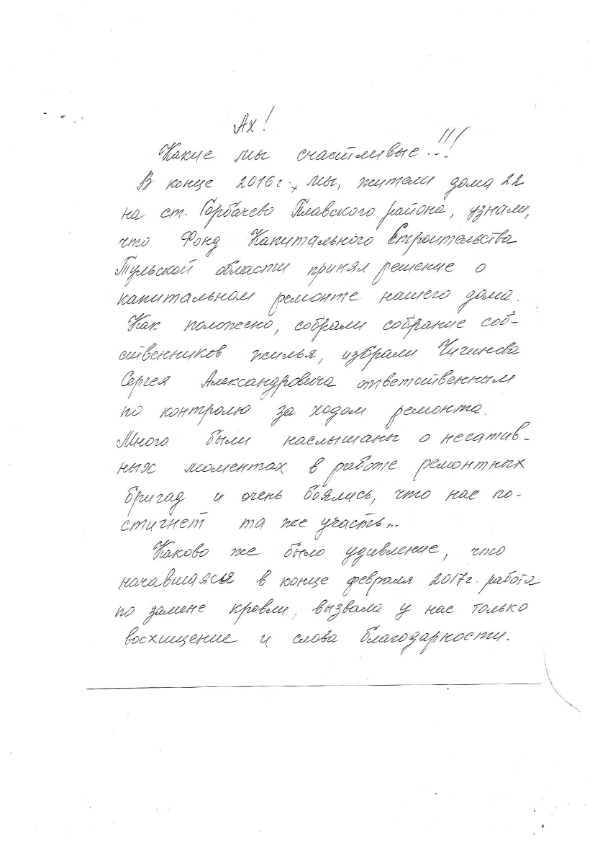 Ах!
Какие мы счастливые!!!
В конце 2016г., мы, жители дома 22
на ст. Горбачево Плавского района, узнали,
что Фонд Капитального Строительства
Тульской области принял решение о
капитальном ремонте нашего дома.
Как положено, собрали собрание соб-
ственников жилья, избрали Чигинова
Сергея Александровича ответственным
по контролю за ходом ремонта.
Много были наслышаны о негатив-
ных моментах в работе ремонтных
бригад и очень боялись, что нас по-
стигнет та же участь...
Каково же было удивление, что
начавшаяся в конце февраля 2017г. работа
по замене кровли, вызвала у нас только
восхищение и слова благодарности.